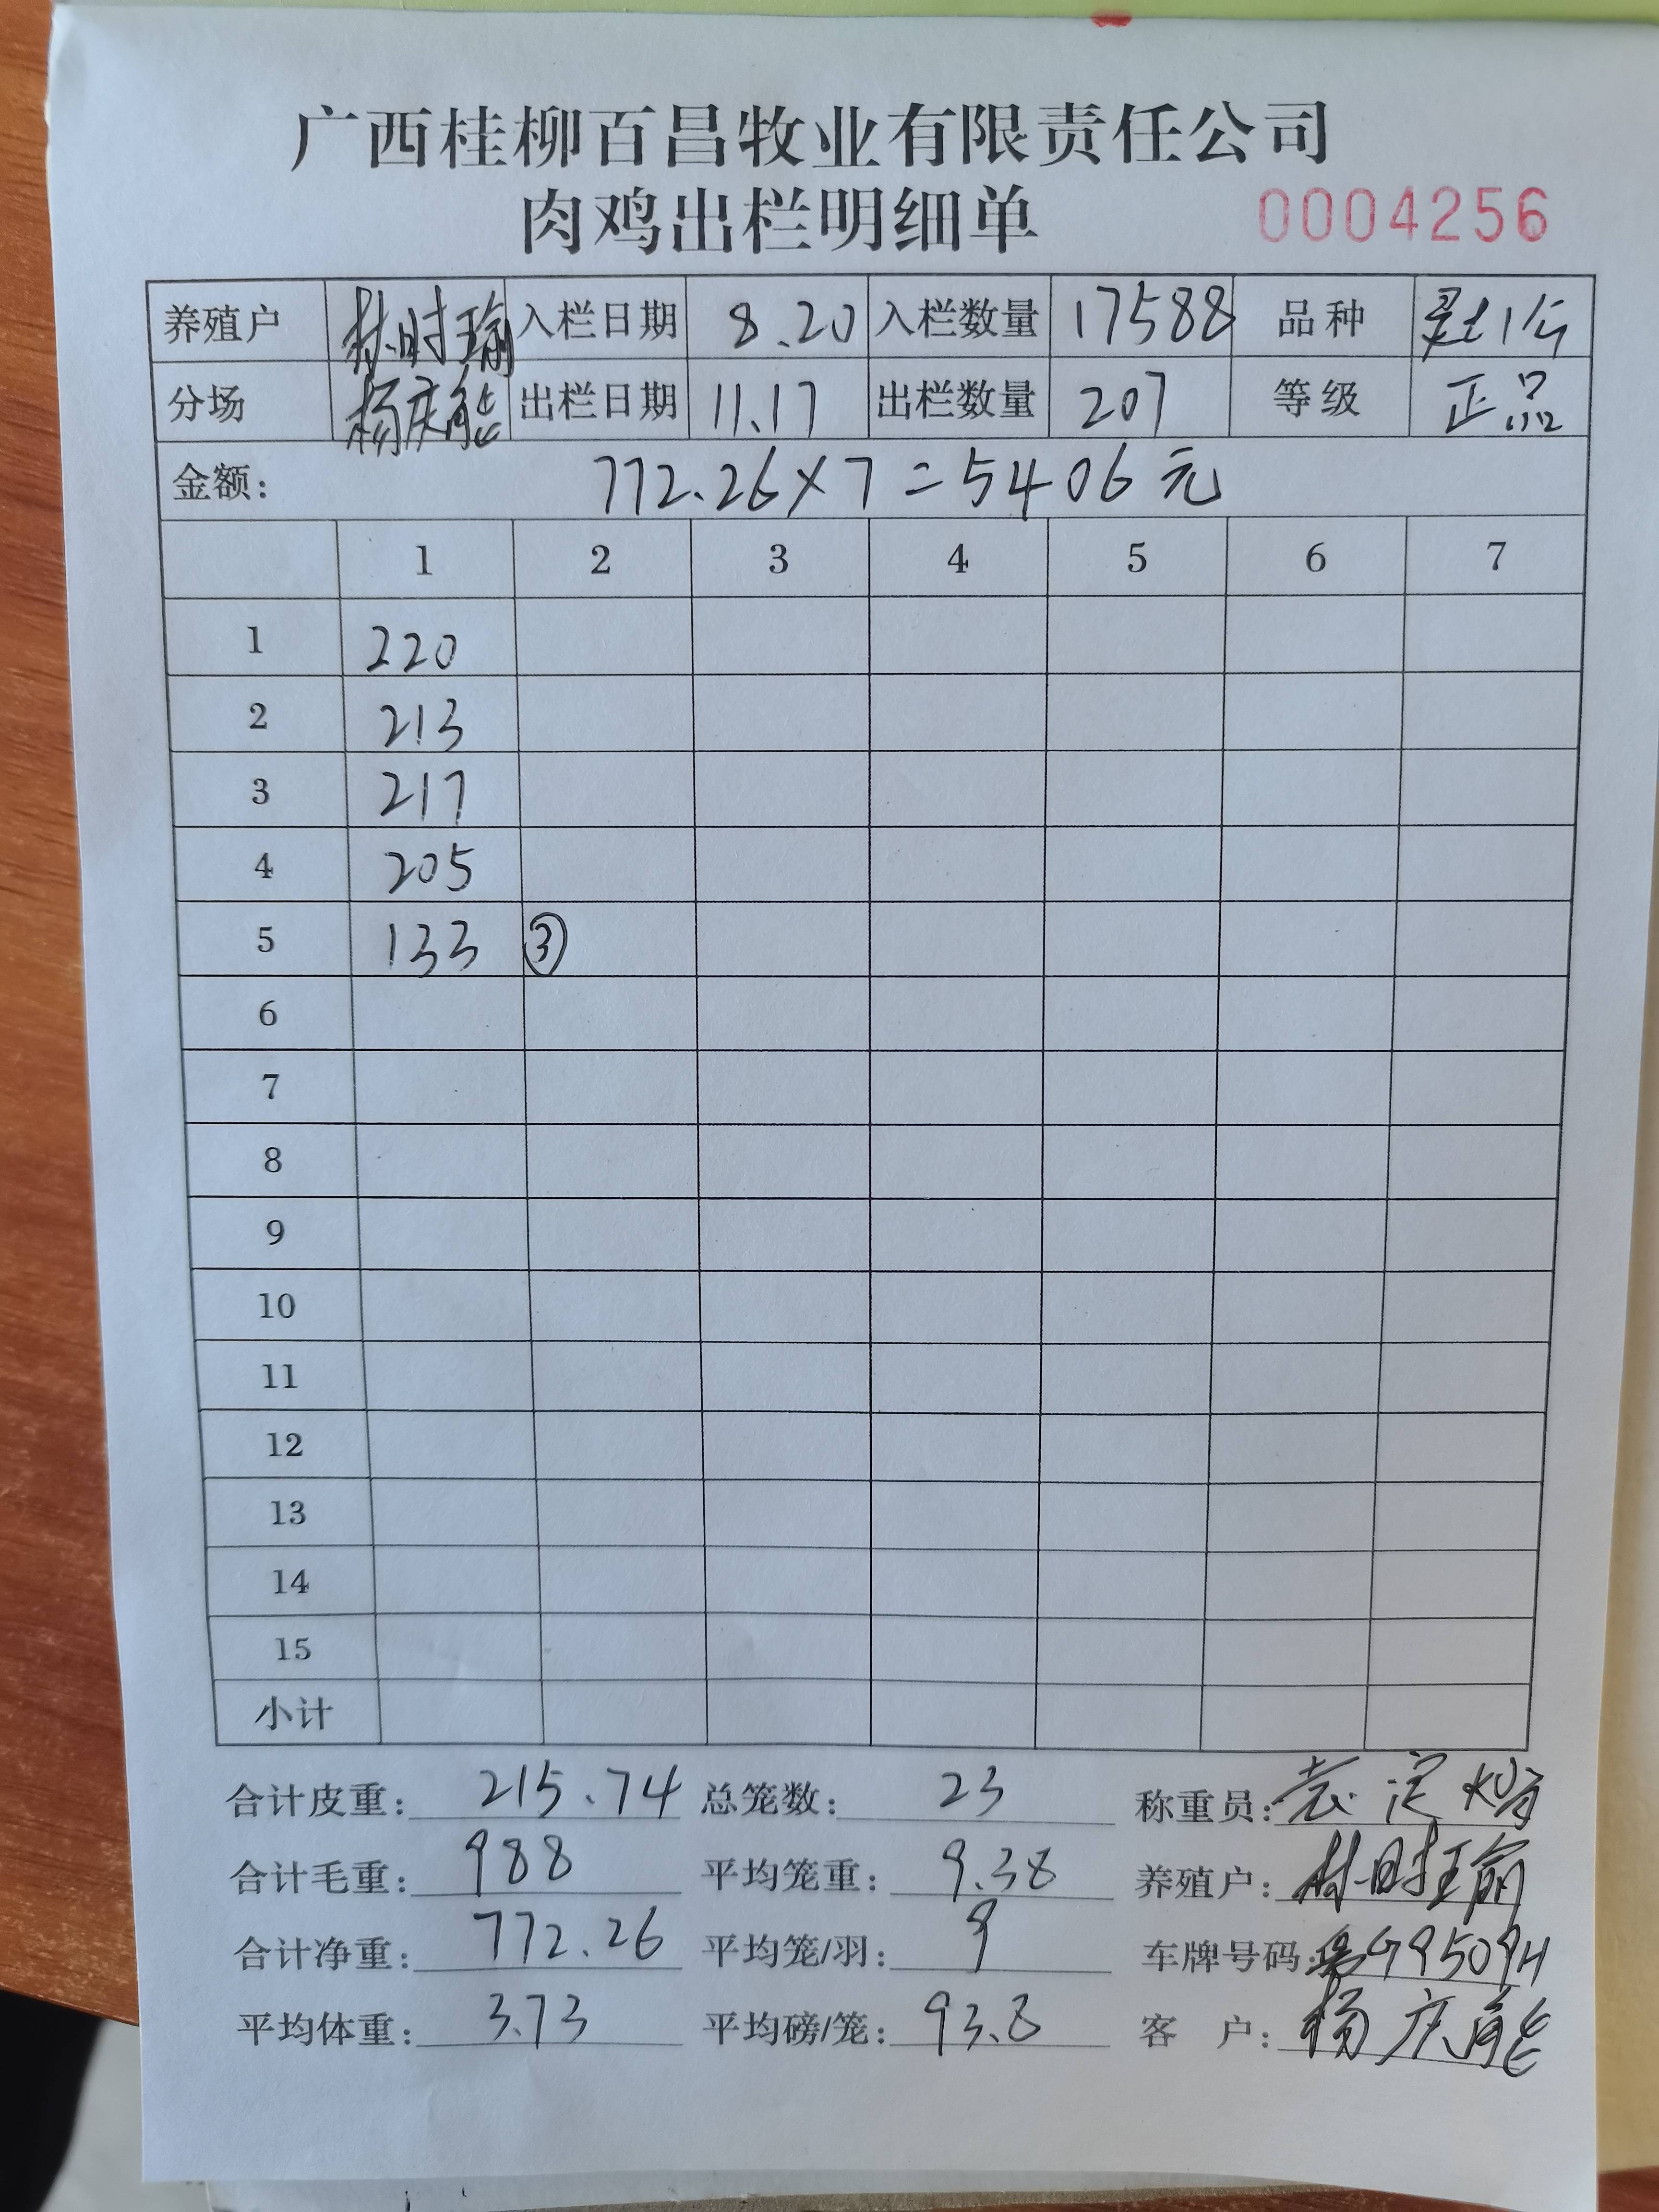 广西桂柳百昌牧业有限责任公司
肉鸡出栏明细单 0004256
养殖户 林时瑜 入栏日期 8.20 入栏数量 17588 品种
分场 杨庆能 出栏日期 11.17 出栏数量 207 等级 正品
金额: 772.26×7=5406元
1 2 3 4 5 6 7
1 220
2 213
3 217
4 205
5 133 ③
6
7
8
9
10
11
12
13
14
15
小计
合计皮重: 215.74 总笼数: 23 称重员:
合计毛重: 988 平均笼重: 9.38 养殖户: 林时瑜
合计净重: 772.26 平均笼/羽: 9 车牌号码: G9509H
平均体重: 3.73 平均磅/笼: 93.8 客户: 杨庆能